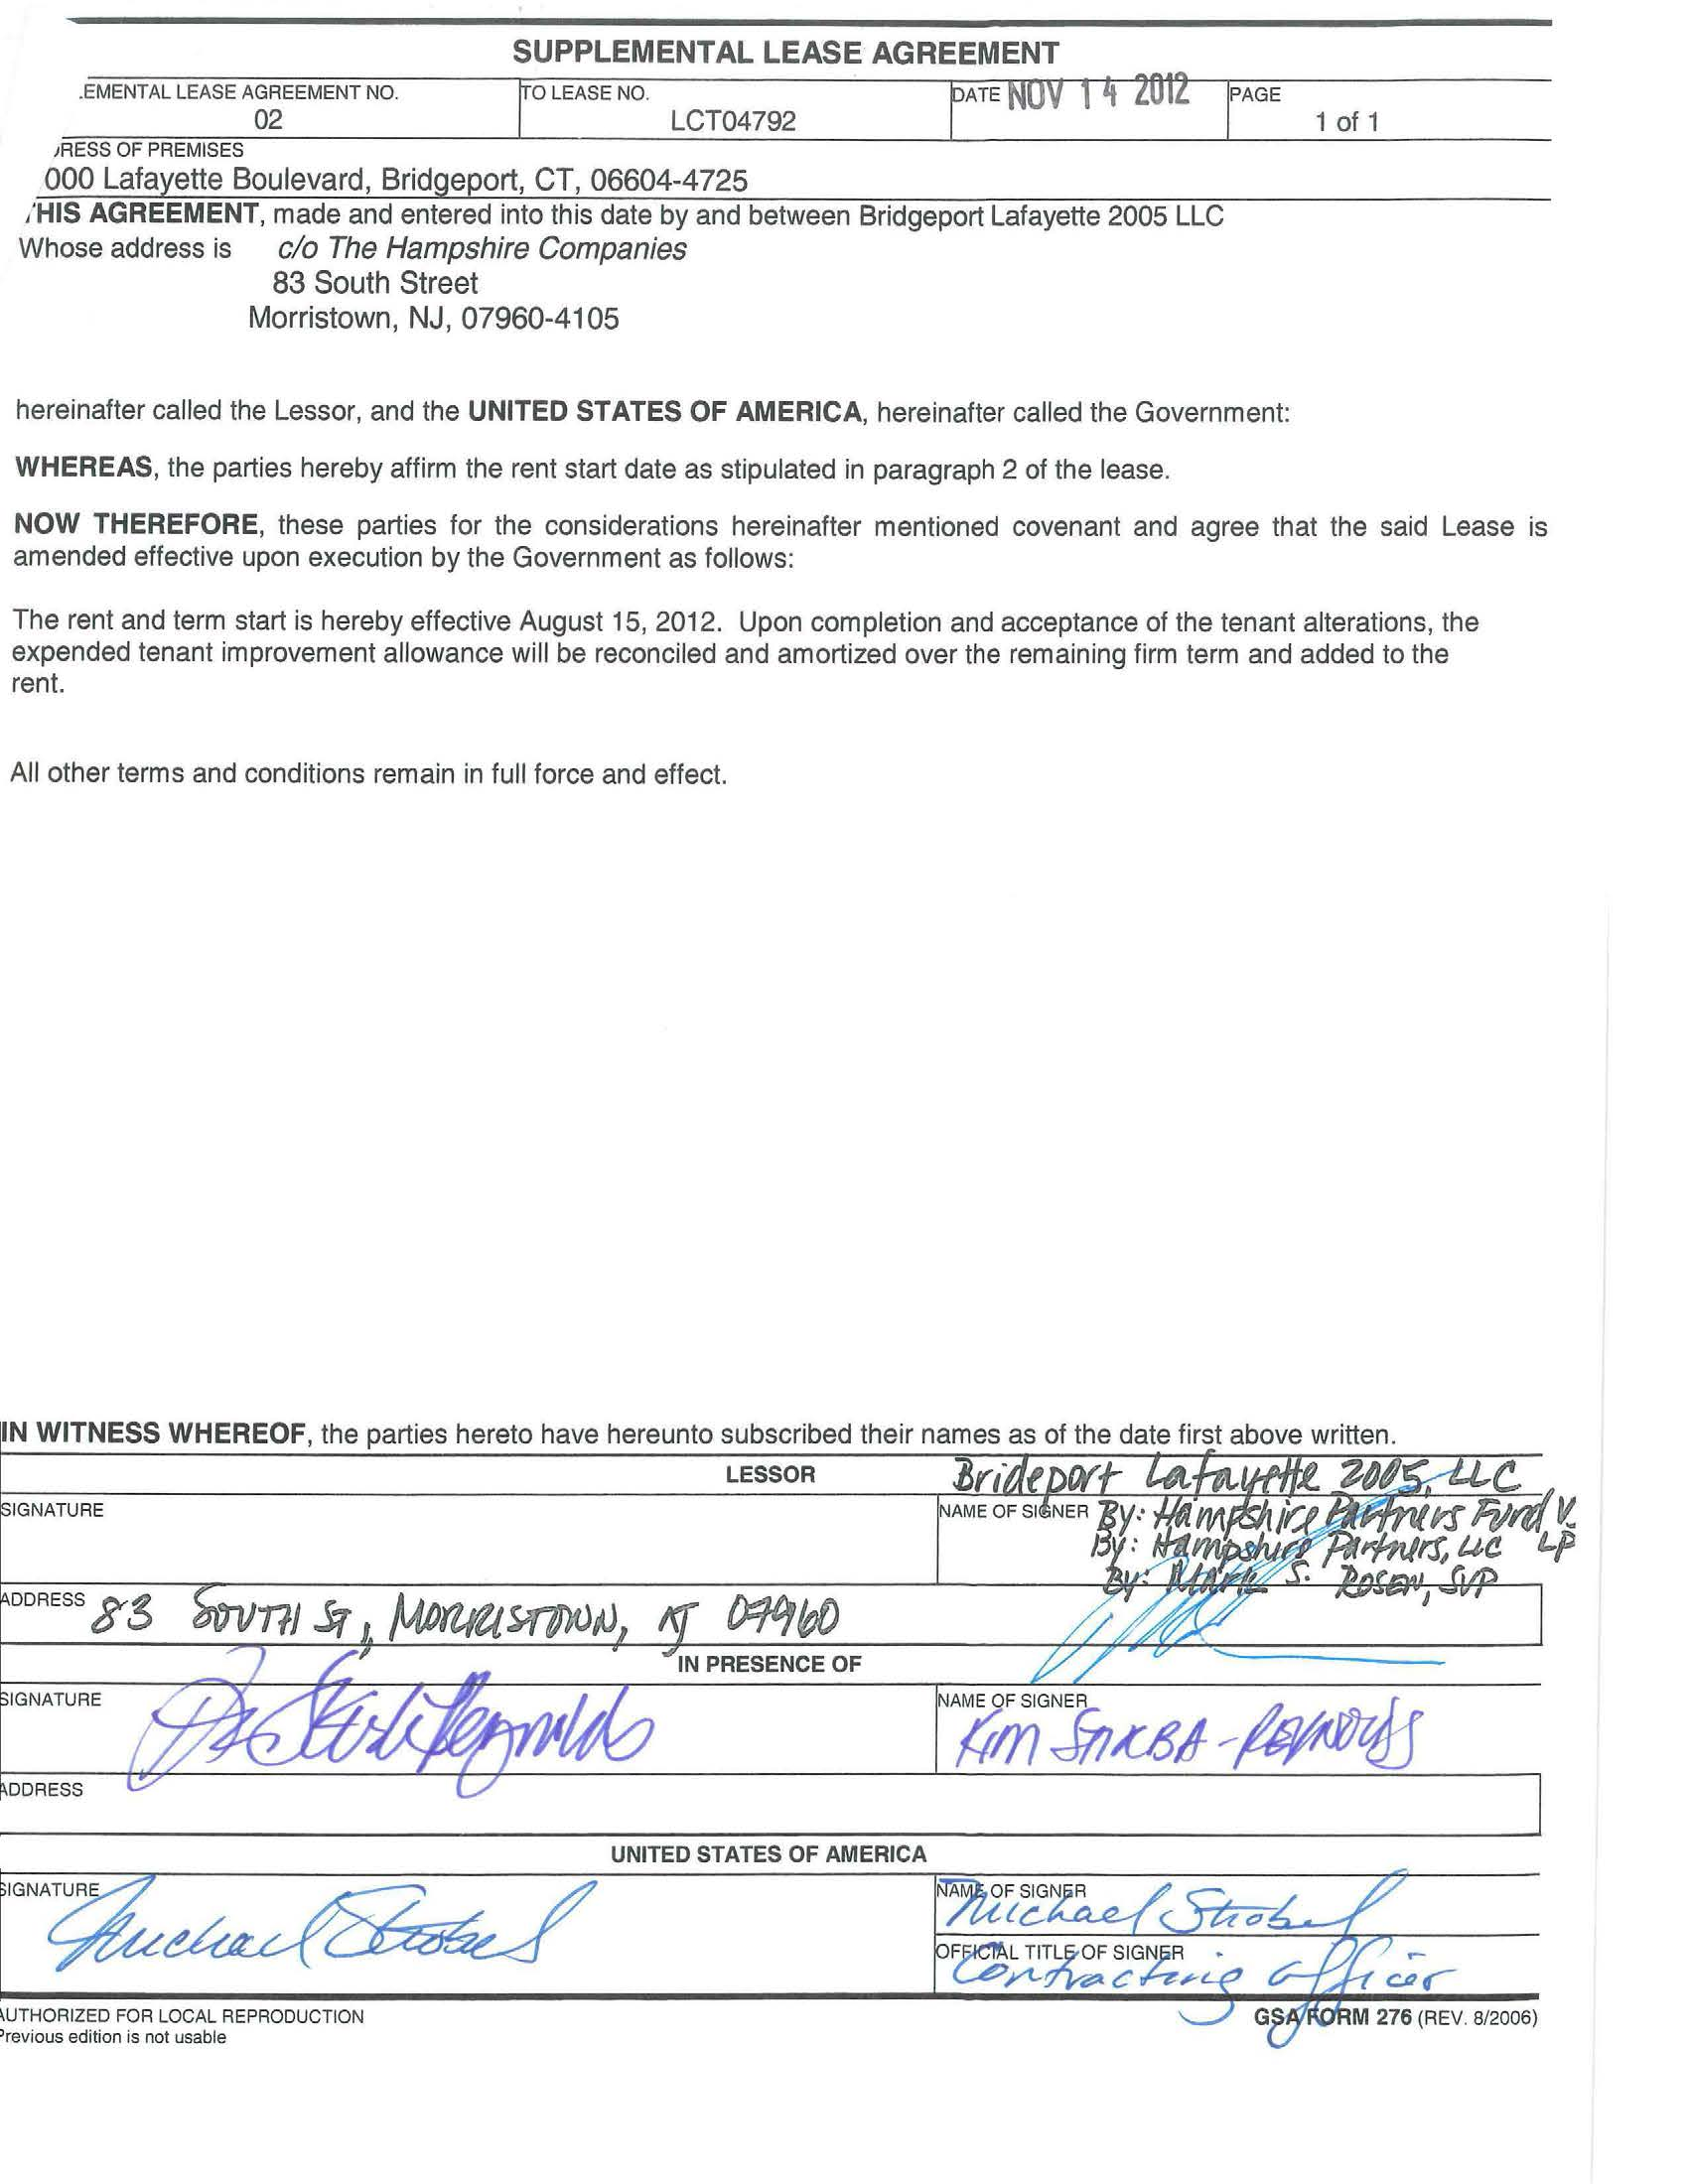 SUPPLEMENTAL LEASE AGREEMENT
.EMENTAL LEASE AGREEMENT NO. TO LEASE NO. DATE NOV 14 2012 PAGE
02 LCT04792 1 of 1
RESS OF PREMISES
000 Lafayette Boulevard, Bridgeport, CT, 06604-4725
HIS AGREEMENT, made and entered into this date by and between Bridgeport Lafayette 2005 LLC
Whose address is c/o The Hampshire Companies
83 South Street
Morristown, NJ, 07960-4105
hereinafter called the Lessor, and the UNITED STATES OF AMERICA, hereinafter called the Government:
WHEREAS, the parties hereby affirm the rent start date as stipulated in paragraph 2 of the lease.
NOW THEREFORE, these parties for the considerations hereinafter mentioned covenant and agree that the said Lease is
amended effective upon execution by the Government as follows:
The rent and term start is hereby effective August 15, 2012. Upon completion and acceptance of the tenant alterations, the
expended tenant improvement allowance will be reconciled and amortized over the remaining firm term and added to the
rent.
All other terms and conditions remain in full force and effect.
IN WITNESS WHEREOF, the parties hereto have hereunto subscribed their names as of the date first above written.
LESSOR Brideport Lafayette 2005, LLC
SIGNATURE NAME OF SIGNER By: Hampshire Partners Fund V.
By: Hampshire Partners, LLC LP
By: Mark S. Rosen, SVP
ADDRESS 83 SOUTH ST, MORRISTOWN, NJ 07960
IN PRESENCE OF
SIGNATURE NAME OF SIGNER
Kim
ADDRESS
UNITED STATES OF AMERICA
SIGNATURE NAME OF SIGNER
Michael Strobel Michael Strobel
OFFICIAL TITLE OF SIGNER
Contracting Officer
AUTHORIZED FOR LOCAL REPRODUCTION GSA FORM 276 (REV. 8/2006)
Previous edition is not usable